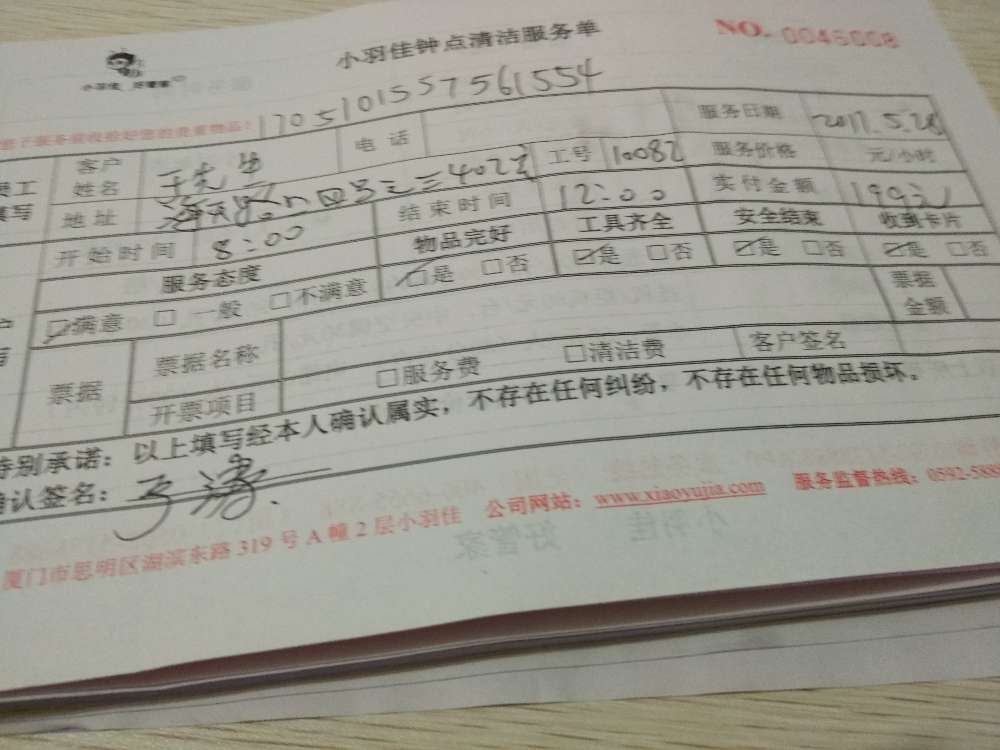 小羽佳钟点清洁服务单
NO. 0046008
小羽佳 好管家
1705101557561554
客户姓名 于先生 电话 服务日期 2017.5.28
地址 402室 工号 10082 服务价格 元/小时
开始时间 8:00 结束时间 12:00 实付金额 199元
服务态度 物品完好 工具齐全 安全结束 收到卡片
☑满意 □一般 □不满意 ☑是 □否 ☑是 □否 ☑是 □否 ☑是 □否
票据 票据名称 票据金额
开票项目 □服务费 □清洁费 客户签名
特别承诺：以上填写经本人确认属实，不存在任何纠纷，不存在任何物品损坏。
确认签名：于涛
厦门市思明区湖滨东路319号A幢2层小羽佳 公司网站：www.xiaoyujia.com 服务监督热线：0592-588